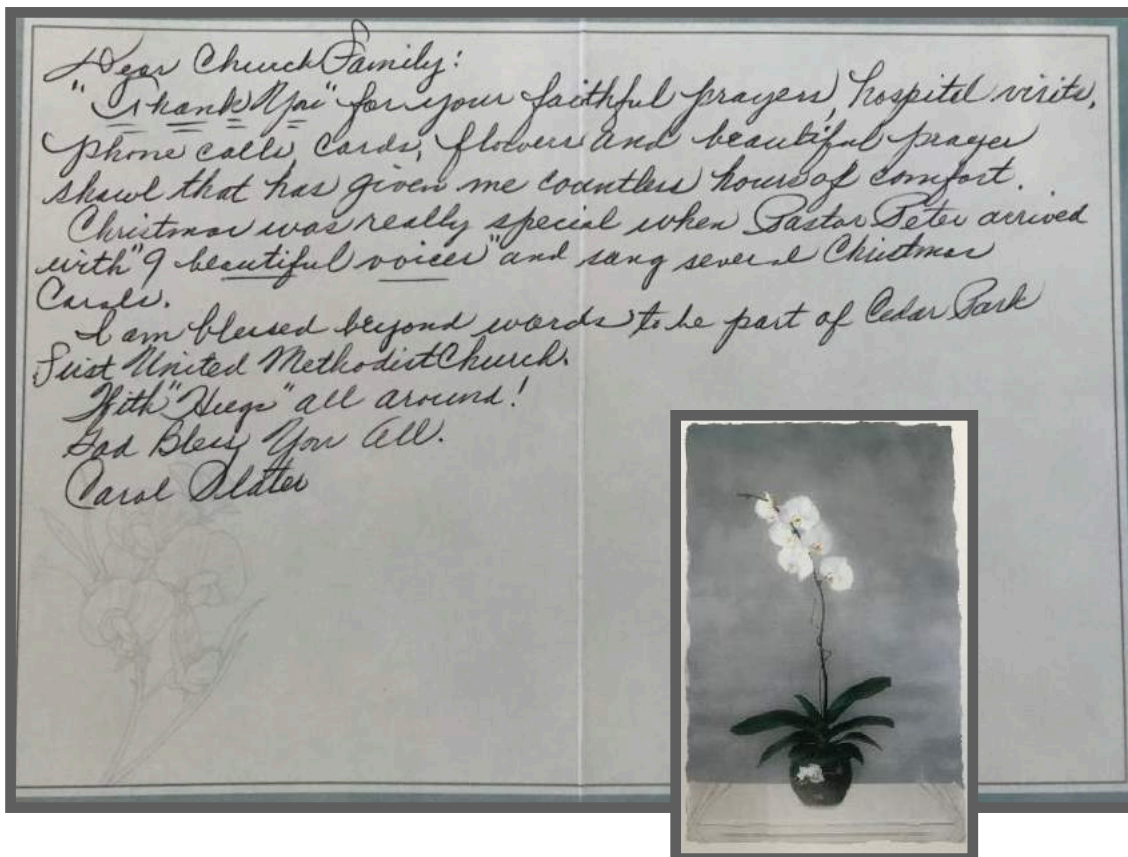 Dear Church Family:
"Thank You" for your faithful prayers, hospital visits,
phone calls, cards, flowers and beautiful prayer
shawl that has given me countless hours of comfort.
Christmas was really special when Pastor Peter arrived
with "9 beautiful voices" and sang several Christmas
Carols.
I am blessed beyond words to be part of Cedar Park
First United Methodist Church.
With "Hugs" all around!
God Bless You All.
Carol Slater